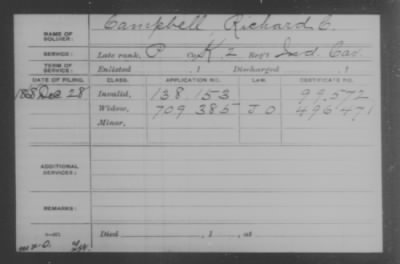 NAME OF SOLDIER: Campbell, Richard C.
SERVICE: Late rank, P Co. K, 2 Reg't Ind. Cav.
TERM OF SERVICE: Enlisted , 1 Discharged , 1
DATE OF FILING. CLASS. APPLICATION NO. LAW. CERTIFICATE NO.
Invalid, 138.153 99,572
Widow, 709 385 J O 496 471
Minor,
ADDITIONAL SERVICES:
REMARKS:
Died , 1 , at